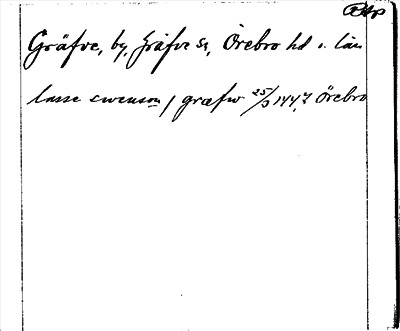 Gräfve, by, Gräfve sn, Örebro hd o. län
lasse swenson j græfw 25/3 1447 Örebro